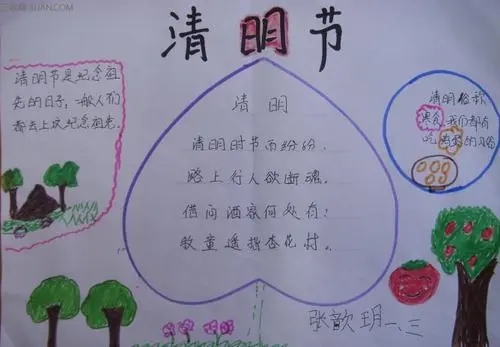 清明节
清明节是纪念祖
先的日子,一般人们
都去上坟纪念祖先.
清明
清明时节雨纷纷,
路上行人欲断魂.
借问酒家何处有?
牧童遥指杏花村.
清明俗称
寒食,我们都有
吃鸡蛋的习俗
张歆玥一、三